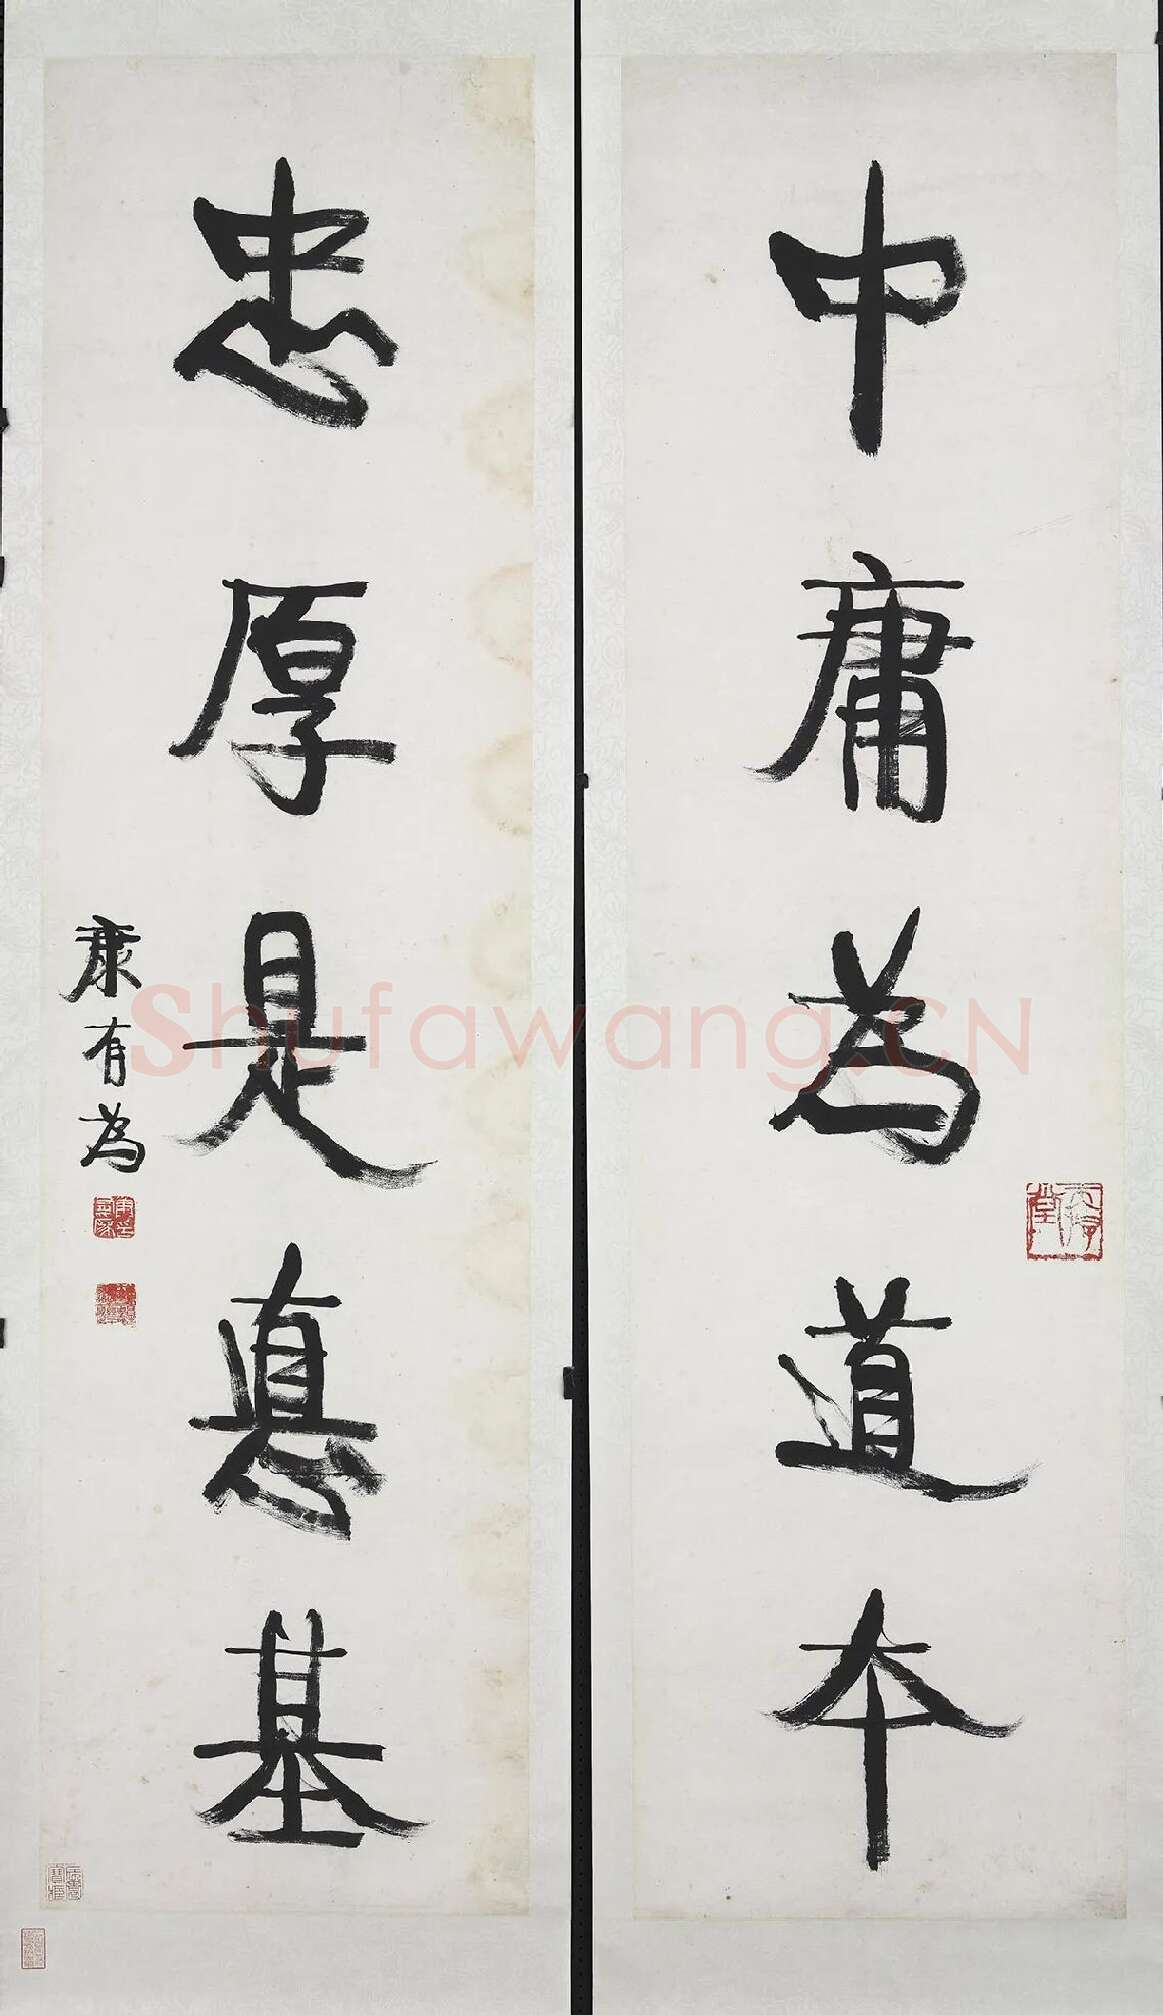 中庸為道本
忠厚是悳基
康有為
Shufawang.CN